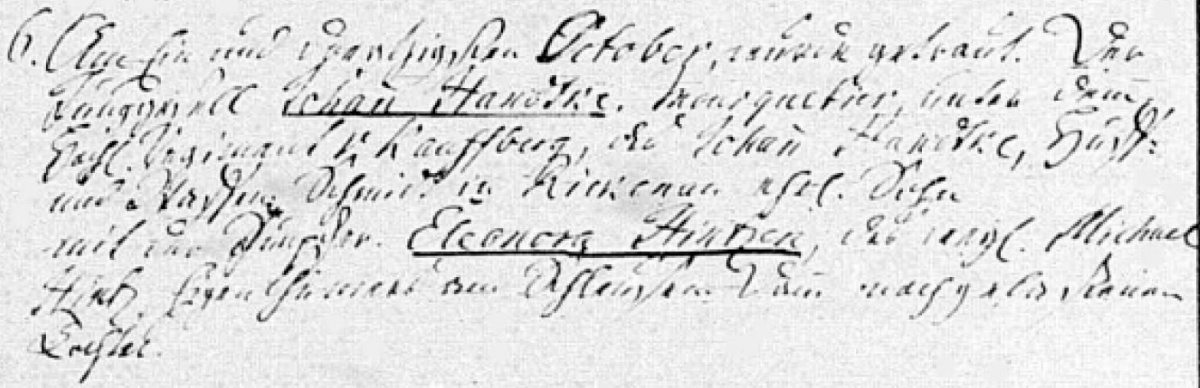 6. Am Ein und zwantzigsten October, wurde getraut. Der
Junggesell Johan̄ Handtke. Mousquetier, unter dem
Hochl. Regiment v. Kauffberg, des Johan̄ Handtke, Huff-
und Waffen Schmidt in Rückenau ehel. Sohn
mit der Jungfer. Eleonora Hintzen, des weyl. Michael
Hintz, Eigenthümers am Damm nachgelassenen
Tochter.